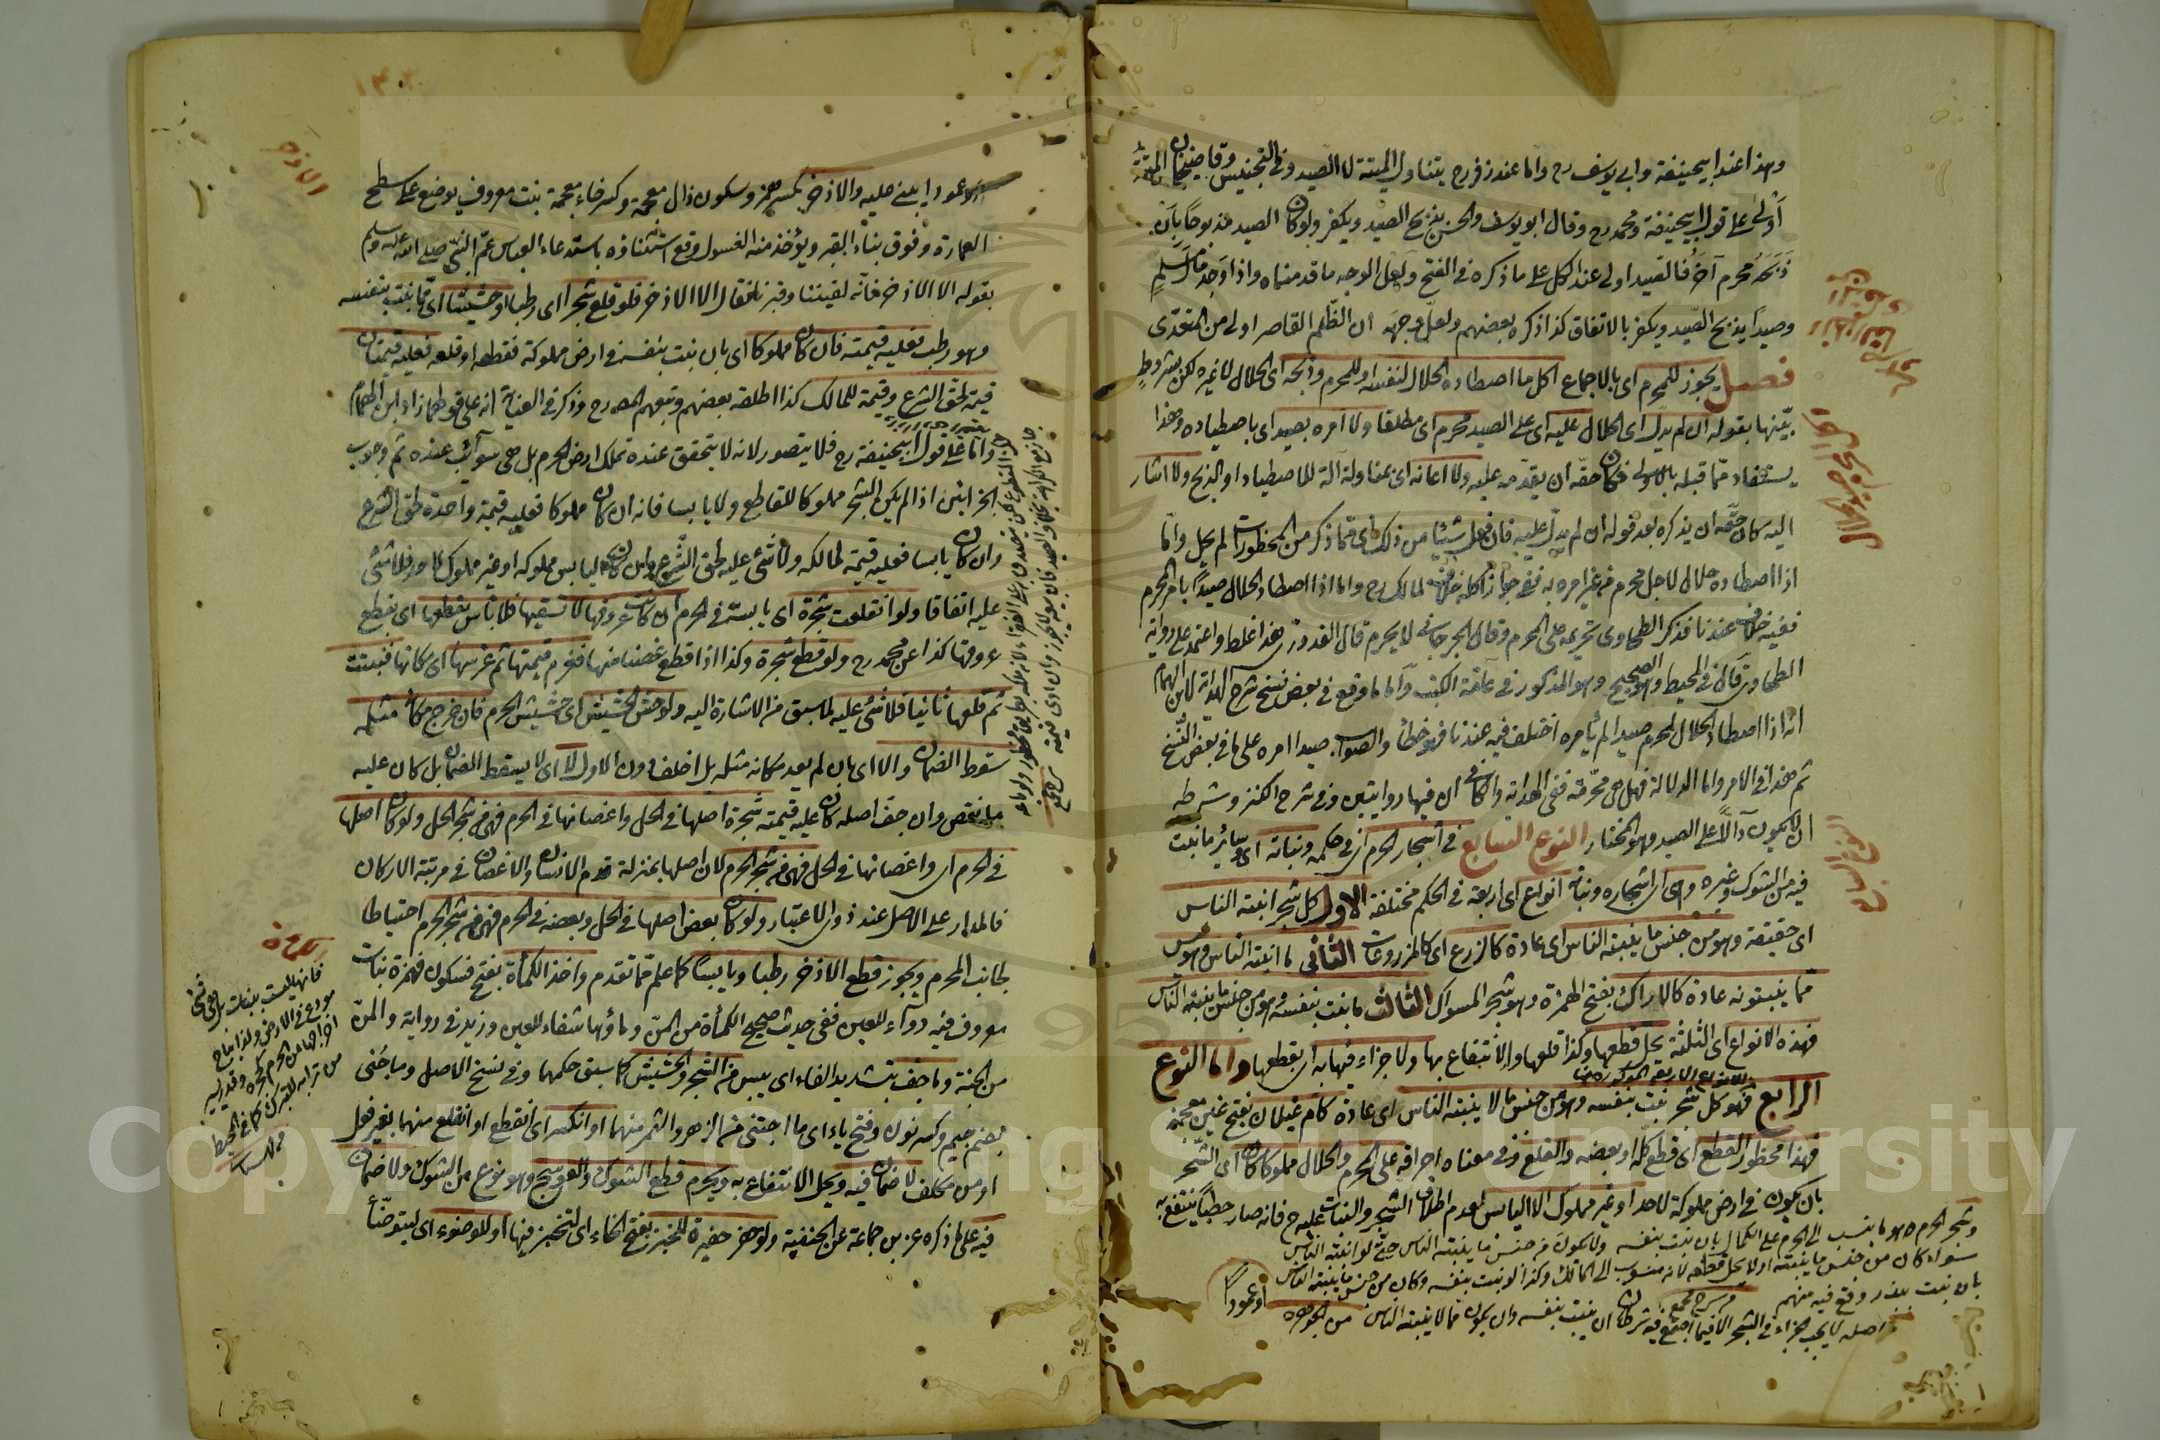 وهذا عند ابيحنيفة وابي يوسف رح واما عند زفر رح يتناول الميتة لا الصيد وفي التجنيس وقاضيخان الميتة
أولى على قول ابيحنيفة ومحمد رح وقال ابو يوسف والحسن يذبح الصيد ويكفر ولو كان الصيد مذبوحا بأن
ذبحه محرم آخر فالصيد اولى عند الكل على ما ذكره في الفتح ولعل الوجه ما قدمناه واذا وجد مال مسلم
وصيدا يذبح الصيد ويكفر بالاتفاق كذا ذكره بعضهم ولعل وجهه ان الظلم القاصر اولى من المتعدى
فصل يجوز للمحرم اي بالاجماع اكل ما اصطاده الحلال لنفسه او للمحرم وذبحه اى الحلال لا غيره لكن بشروط
بينها بقوله ان لم يدل اى الحلال عليه اى على الصيد محرم اى مطلقا ولا امره بصيده اى باصطياده وهذا
يستفاد مما قبله بالاولى فكان حقه ان يقدمه عليه ولا اعانه اى بمناولة آلة للاصطياد او الذبح ولا اشار
اليه كان حقه ان يذكره بعد قوله ان لم يدل عليه فان فعل شيئا من ذلك اى مما ذكر من المحظورات لم يحل واما
اذا اصطاده حلال لاجل محرم من غير امره به ففي جواز اكله خلاف لمالك رح واما اذا اصطاد الحلال صيدا بامر المحرم
ففيه خلاف عندنا فذكر الطحاوى تحريمه على المحرم وقال الجرجاني لا يحرم قال القدورى هذا غلط واعتمد على رواية
الطحاوى قال في المحيط وهو الصحيح وهو المذكور في عامة الكتب واما ما وقع في بعض نسخ شرح الهداية لابن الهمام
انه اذا اصطاد الحلال لمحرم صيدا لم يأمره اختلف فيه عندنا فهو خطأ والصواب صيدا امره على ما في بعض النسخ
ثم هذا في الامر واما الدلالة فهل هي محرمة ففي الهداية والكافي ان فيها روايتين وفي شرح الكنز وشرطه
ان لا يكون دالا على الصيد وهو المختار النوع السابع في اشجار الحرم اى في حكمه ونباته اى وسائر ما نبت
فيه من الشوك وغيره وهي اى اشجاره ونباته انواع اى اربعة في الحكم مختلفة الاول كل شجر انبته الناس
اى حقيقة وهو من جنس ما ينبته الناس اى عادة كالزرع اى كالمزروعات الثاني ما انبته الناس وهو ليس
مما ينبتونه عادة كالاراك بفتح الهمزة وهو شجر المسواك الثالث ما نبت بنفسه وهو من جنس ما ينبته الناس
فهذه الانواع اى الثلثة يحل قطعها وكذا قلعها والانتفاع بها ولا جزاء فيها به اى بقطعها واما النوع
الرابع فهو كل شجر نبت بنفسه وهو من جنس ما لا ينبته الناس اى عادة كام غيلان بفتح غين معجمة
فهذا محظور القطع اى قطع كله او بعضه والقلع وفي معناه احراقه على المحرم والحلال مملوكا كان اى الشجر
بان يكون في ارض مملوكة لاحد او غير مملوك الا اليابس لعدم اطلاق الشجر والنبات عليه ح فانه صار حطبا ينتفع به
وشجر الحرم هو ما ينسب الى الحرم على الكمال بان نبت بنفسه ولا يكون من جنس ما ينبته الناس حتى لو انبته الناس
سواء كان من جنس ما ينبته اولا يحل قطعه لانه منسوب الى المالك وكذا لو نبت بنفسه وكان من جنس ما ينبته الناس
بان نبت بذر وقع فيه منهم شرح مجمع
اصله لا يجب الجزاء في الشجر الا فيما اجتمع فيه شرطان ان ينبت بنفسه وان يكون مما لا ينبته الناس من الجوهره
او عمودا
اكل المحرم صيد حلال
النوع السابع
او عمودا يبنى عليه والاذخر بكسر همز وسكون ذال معجمة وكسر خاء معجمة نبت معروف يوضع على سطح
العمارة وفوق بناء القبر ويؤخذ منه الغسول وقع استثناؤه باستدعاء العباس عم النبي صلى الله عليه وسلم
بقوله الا الاذخر فانه لقيننا وقبرنا فقال الا الاذخر فلو قلع شجرا اى رطبا او حشيشا اى مما نبت بنفسه
وهو رطب فعليه قيمته فان كان مملوكا اى بان نبت بنفسه في ارض مملوكة فقطعه او قلعه فعليه قيمتان
قيمة لحق الشرع وقيمة للمالك كذا اطلقه بعضهم وتبعهم المص رح وذكر في العناية انه على قولهما زاد ابن الهمام
واما على قول ابيحنيفة رح فلا يتصور لانه لا يتحقق عنده تملك ارض الحرم بل هي سوائب عنده ثم وجوب
الجزاء انما يتبين اذا لم يكن الشجر مملوكا للقاطع ولا يابسا فانه ان كان مملوكا فعليه قيمة واحدة لحق الشرع
وان كان يابسا فعليه قيمته لمالكه ولا شئ عليه لحق الشرع وان كان اليابس مملوكه او غير مملوك لاحد فلا شئ
عليه اتفاقا ولو انقلعت شجرة اى يابسة في الحرم ان كانت عروقها لا تسقيها فلا بأس بقطعها اى بقطع
عروقها كذا عن محمد رح ولو قطع شجرة وكذا اذا قطع غصنا منها فغرم قيمتها ثم غرسها اى مكانها فنبتت
ثم قلعها ثانيا فلا شئ عليه لما سبق من الاشارة اليه ولو حش الحشيش اى حشيش الحرم فان خرج مكانه مثله
سقط الضمان والا اى بان لم يعد مكانه مثله بل اخلف دون الاول لا اى لا يسقط الضمان بل كان عليه
ما نقص وان جف اصله كان عليه قيمته شجرة اصلها في الحل واغصانها في الحرم فهي من شجر الحل ولو كان اصلها
في الحرم اى واغصانها في الحل فهي من شجر الحرم لان اصلها بمنزلة قدم الانسان والاغصان في مرتبة الاركان
فالمدار على الاصل عند ذوى الاعتبار ولو كان بعض اصلها في الحل وبعضه في الحرم فهي من شجر الحرم احتياطا
لجانب المحرم ويجوز قطع الاذخر رطبا ويابسا كما علم مما تقدم واخذ الكمأة بفتح فسكون فهمزة نبات
معروف فيه دواء للعين ففي حديث صحيح الكمأة من المن وماؤها شفاء للعين وزيد في رواية والمن
من الجنة وما جف بتشديد الفاء اى يبس من الشجر والحشيش كما سبق حكمهما وفي نسخ الاصل وما جنى
بضم جيم وكسر نون وفتح ياء اى ما اجتنى من الزهر والثمر منهما او انكسر اى انقطع او انقلع منهما بغير فعل
او من مكلف لا ضمان فيه ويحل الانتفاع به ويحرم قطع الشوك والعوسج وهو نوع من الشوك ولا ضمان
فيه على ما ذكره عز بن جماعة عن الحنفية ولو حفر حفيرة للخبز بفتح الخاء اى لتخبز فيها او للوضوء اى ليتوضأ
الاذخر
كمأة
فانها ليست بنبات بل هي شئ
مودع في الارض ولذا يباح
اخراجها من الحرم كحجره وقدر يسير
من ترابه للتبرك كما في المحيط